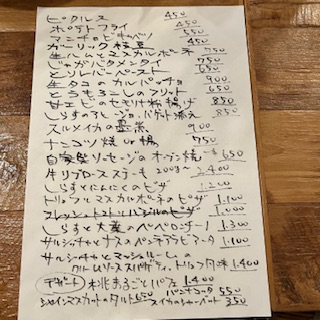 ピクルス 450
ポテトフライ 450
550
ガーリック枝豆 450
生ハムとマスカルポーネ 750
じゃがバタメンタイ 750
とりレバーペースト 650
生タコのカルパッチョ 900
とうもろこしのフリット 650
甘エビの 揚げ 850
しらすの バゲット添え 850
スルメイカの 900
ナンコツ焼 or 揚 750
自家製ソーセージのオーブン焼 650
牛リブロースステーキ 200g〜 2400
しらすとにんにくのピザ 1.200
トリュフとマスカルポーネのピザ 1.100
フレッシュトマトとバジルのピザ 1.000
しらすと大葉のペペロンチーノ 1.300
サルシッチャとナスのペンネアラビアータ 1.100
サルシッチャとマッシュルームの
クリームソーススパゲティ、トリュフ 1.400
デザート 桃まるごとパフェ 1.400
パンナコッタ 550
シャインマスカットのタルト 650 スイカのシャーベット 350